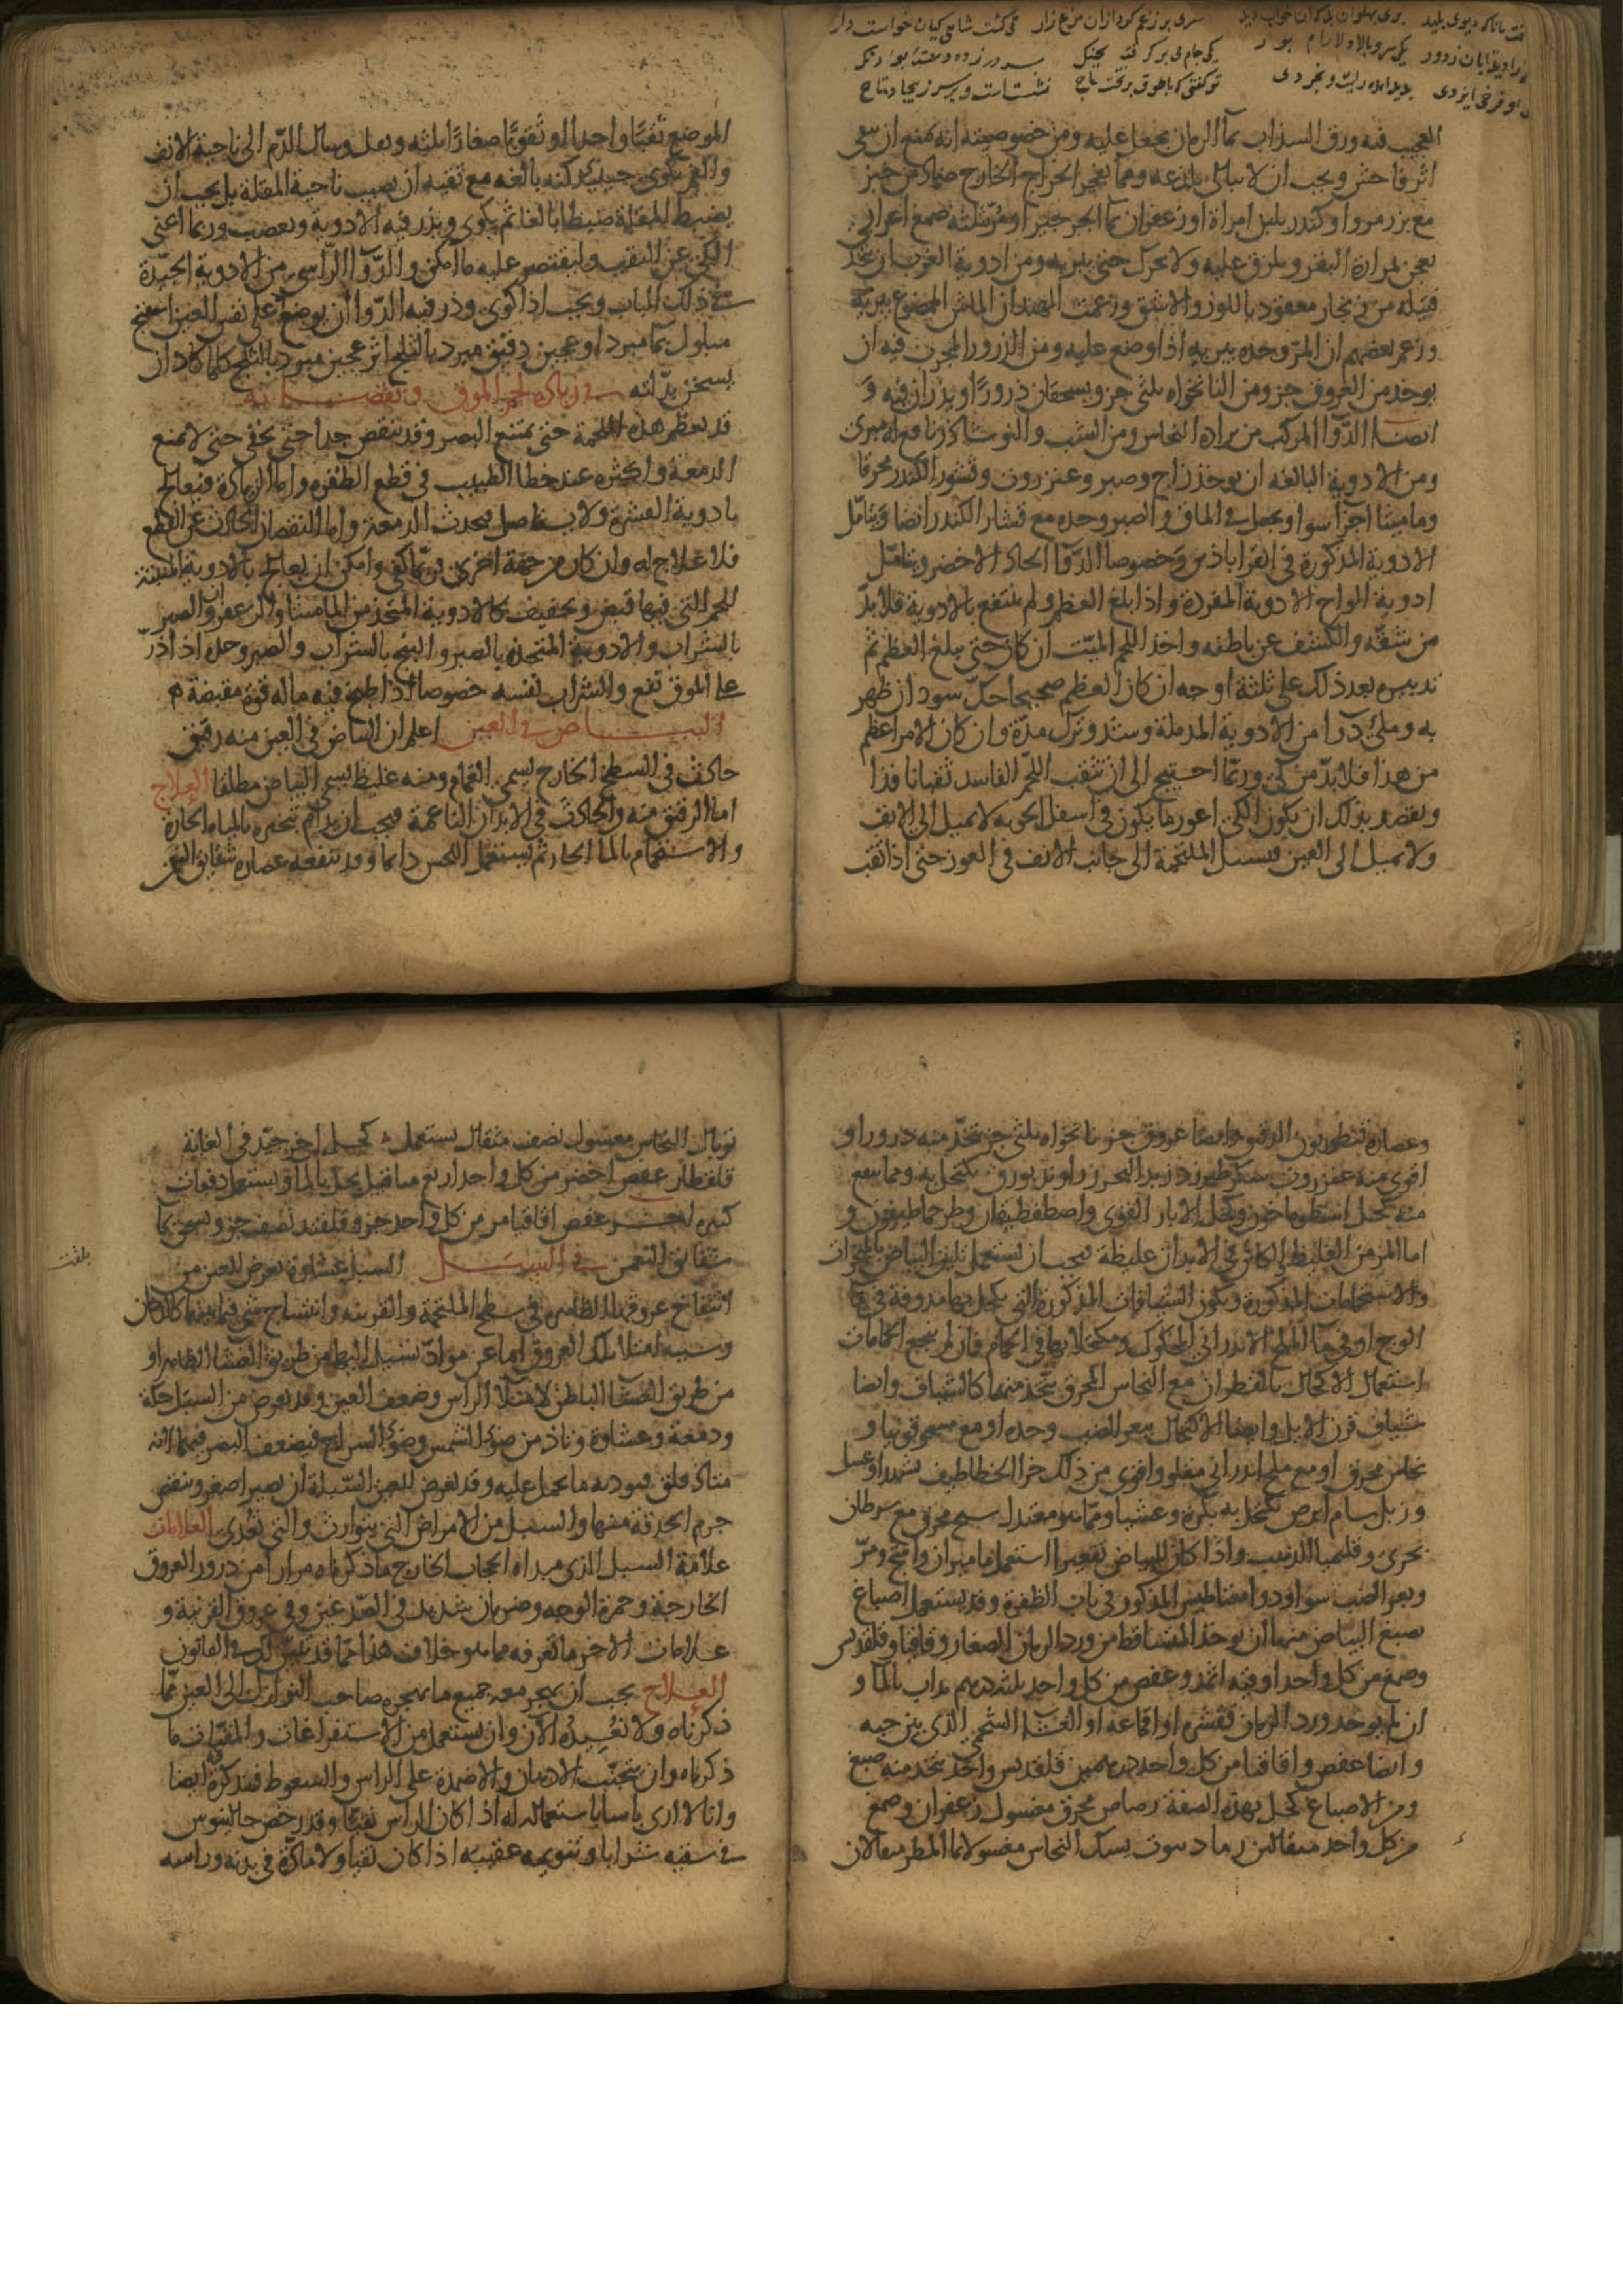 العجيب فيه ورق السذاب بماء الرمان يجعل عليه ومن خصوصيته انه يمنع ان يبقى
اثر فاحش ويجب ان لا يبالى بلذعه ومما يفجر الخراج الخارج ضماد من خبز
مع بزر مرو او كندر بلبن امراة او زعفران بماء الجرجير او مر بثلثه صمغ اعرابى
يعجن بمرارة البقر ويلزق عليه ولا يحرك حتى يبريه ومن ادوية الغرب ان يتخذ
فتيلة من زنجار معقود باللوز والاشق وزعمت الهند ان الماش الممضوغ يبريه
وزعم بعضهم ان المر وحده يبريه اذا وضع عليه ومن الذرور المجرب فيه ان
يوخذ من العروق جزو ومن النانخواه ثلثى جزو ويسحقان ذرورا ويذران فيه و
ايضا الدوا المركب من برادة النحاس ومن الشب والنوشادر نافع له مبرى
ومن الادوية البالغه ان يوخذ زاج وصبر وعنزروت وقشور الكندر محرقا
وماميثا اجزا سوا ويجعل فى الماق والصبر وحده مع قشار الكندر ايضا ويتامل
الادوية المذكورة فى القراباذين وخصوصا الدوا الحاد الاخضر ويتامل
ادوية الواح الادوية المفردة واذا بلغ العظم ولم ينتفع بالادوية فلا بد
من شقه والكشف عن باطنه واخذ اللحم الميت ان كان حتى يبلغ العظم ثم
تدبيره بعد ذلك على ثلثة اوجه ان كان العظم صحيحا حك سواد ان ظهر
به وملئ دوا من الادوية المدملة وشد وترك مدة وان كان الامر اعظم
من هذا فلا بد من كى وربما احتيج الى ان تثقب اللحم الفاسد ثقبا نافذا
ويقصد بذلك ان يكون الكى اغورها يكون فى اسفل الجوبه لا يميل الى الانف
ولا يميل الى العين فيسيل الملتحمة الى جانب الانف فى الغور حتى اذا ثقب
الموضع ثقبا واحدا او ثقوبا صغارا ثلثه ونفذ وسال الدم الى ناحية الانف
والفم تكوى حينئذ كية بالغه مع تقيه ان يصيب ناحية المقلة بل يجب ان
يضبط المقلة ضبطا بالغا ثم يكوى ويذر فيه الادوية ويعصب وربما اغنى
الكى عن الثقب وليقتصر عليه ما امكن والدوا الراسى من الادوية الجيدة
فى ذلك الباب ويجب اذا كوى وذر فيه الدوا ان يوضع على نفس العين اسفنج
مبلول بما مبرد او عجين دقيق مبرد بالثلج اثر عجين مبرد بالثلج كلما كاد ان
يسخن بدلته فى زيادة لحم الموق ونقصانه
قد تعظم هذه اللحمة حتى تمنع البصر وقد تنقص جدا حتى يخفى حتى لا تمنع
الدمعة واكثره عند خطا الطبيب فى قطع الظفرة واما الزيادة فتعالج
بادوية الظفرة ولا يستاصل فيحدث الدمعة واما النقصان الحادث عن القطع
فلا علاج له وان كان من جهة اخرى فربما كفى وامكن ان يعالج بالادوية المنبتة
للحم التى فيها قبض وتجفيف كالادوية المتخذ من الماميثا والزعفران والصبر
بالشراب والادوية المتخذة بالصبر والبنج بالشراب والصبر وحده اذا ذر
على الموق نفع والشراب نفسه خصوصا اذا طبخ فيه ماله قوة مقبضة
البياض فى العين اعلم ان البياض فى العين منه رقيق
حادث فى السطح الخارج يسمى الغمام ومنه غليظ يسمى البياض مطلقا العلاج
اما الرقيق منه والحادث فى الابدان الناعمة فيجب ان يدام تبخيره بالمياه الحارة
والاستحمام بالماء الحار ثم يستعمل اللحس دائما وقد تنفعه عصارة شقايق النعمن
وعصارة قنطوريون الدقيق وايضا عروق جزو نانخواه ثلثى جزو يتخذ منه ذرور او
اقوى منه عنزروت سكر طبرزد زبد البحر زراوند بورق يكتحل به ومما ينفع
منه كحل اسطرماخون وكحل الابار القوى واصطفطيقان وطرحماطيقون و
اما المزمن الغليظ والكائن فى الابدان غليظة يجب ان يستعمل تليين البياض بالبخورات
والاستحمامات المذكورة وتكون الشيافات المذكورة التى يكحل بها مدوفة فى ماء
الوج او فى ماء الملح الاندرانى المحكوك ومكتحلا بها فى الحمام فان لم ينجع الحمامات
استعمال الاكتحال بالقطران مع النحاس المحرق يتخذ منهما كالشياف وايضا
شياف قرن الايل وايضا الاكتحال ببعر الضب وحده او مع مسحوقونيا و
نحاس محرق او مع ملح اندرانى مقلو واقوى من ذلك خرا الخطاطيف بشهد او عسل
وزبل سام ابرص يكتحل به بكرة وعشيا ومما هو معتدل سبج محرق مع سرطان
بحرى وقليميا الذهب واذا كان للبياض تقعير استعمل ماميران واشج ومر
وبعر الضب سوا ودوا مغناطيس المذكور فى باب الظفرة وقد يستعمل اصباغ
تصبغ البياض منها ان يوخذ المتساقط من ورد الرمان الصغار وقاقيا وقلقديس
وصمغ من كل واحد اوقية اثمد وعفص من كل واحد ثلثه دراهم يداب بالما و
ان لم يوخد ورد الرمان فقشره او اقماعه او الغشا الشحمى الذى بين حبه
وايضا عفص واقاقيا من كل واحد درهمين قلقديس واحد يتخذ منه صبغ
ومن الاصباغ كحل بهذه الصفة رصاص محرق مغسول زعفران وصمغ
من كل واحد مثقالين رماد بيوت يسبك النحاس مغسولا بماء المطر مثقالان
توبال النحاس مغسول نصف مثقال يستعمل كحل اخر جيد فى الغاية
قلقطار عفص اخضر من كل واحد اربع مثاقيل يحل بالما ويستعمل دفعات
كثيرة اخر عفص اقاقيا مر من كل واحد جزو قلقند نصف جزو يعجن بما
شقائق النعمن فى السبل السبل غشاوة تعرض للعين من
انتفاخ عروقها الظاهره فى سطح الملتحمة والقرنيه وانتساج شى فيما بينهما كالدخان
وسببه امتلا تلك العروق اما عن مواد تسيل اليها من طريق الغشا الظاهر او
من طريق الغشا الباطن لامتلا الراس وضعف العين وقد يعرض من السبل حكة
ودمعة وغشاوة وتاذ من ضوء الشمس وضوء السراج فيضعف البصر فيهما لانه
متاذ قلق فيوذيه ما يحمل عليه وقد يعرض للعين السبلة ان تصير اصغر وينقص
جرم الحدقة منها والسبل من الامراض التى يتوارث والتى تعدى العلامات
علامة السبل الذى مبداه الحجاب الخارج ما ذكرناه مرارا من درور العروق
الخارجة وحمرة الوجه وضربان شديد فى الصدغين وفى عروق القرنية و
علامات الاخر ما تعرفه مما هو خلاف هذا مما قد بين لك فى القانون
العلاج يجب ان يهجر معه جميع ما يهجره صاحب النوازل الى العين مما
ذكرناه ولا نعيده الان وان يستعمل من الاستفراغات والمنقيات ما
ذكرناه وان يتجنب الادهان والاضمدة على الراس والسعوط فقد كره ايضا
وانا لا ارى باسا باستعماله اذا كان الراس نقيا وقد رخص جالينوس
فى سقيه شرابا وتنويمه عقيبه اذا كان نقيا ولا مادة فى بدنه وراسه